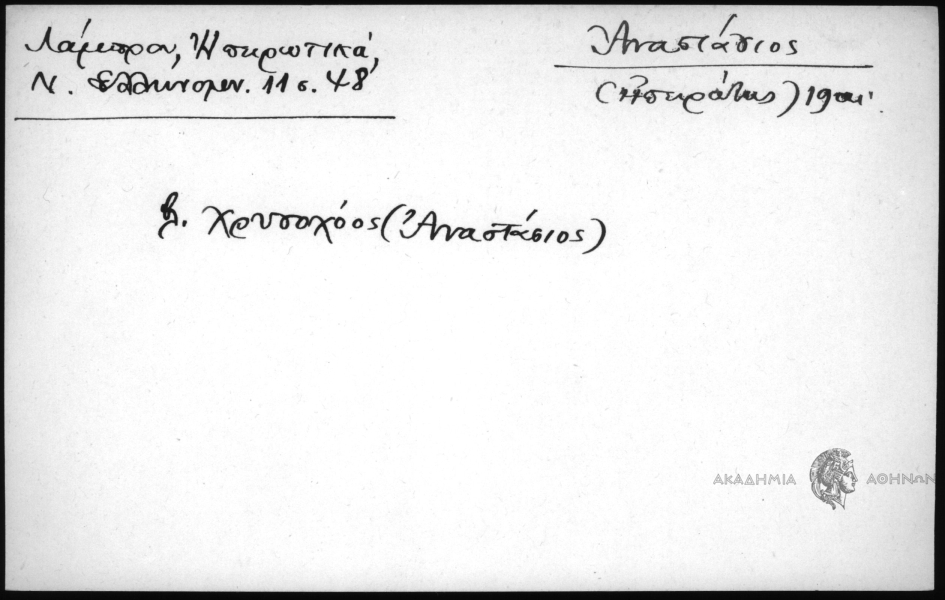 Λάμπρου, Ἠπειρωτικά,
Ν. Ἑλληνομν. 11 σ. 48
Ἀναστάσιος
(Ἠπειρώτης) 19 αι.
β. Χρυσοχόος (Ἀναστάσιος)
ΑΚΑΔΗΜΙΑ ΑΘΗΝΩΝ